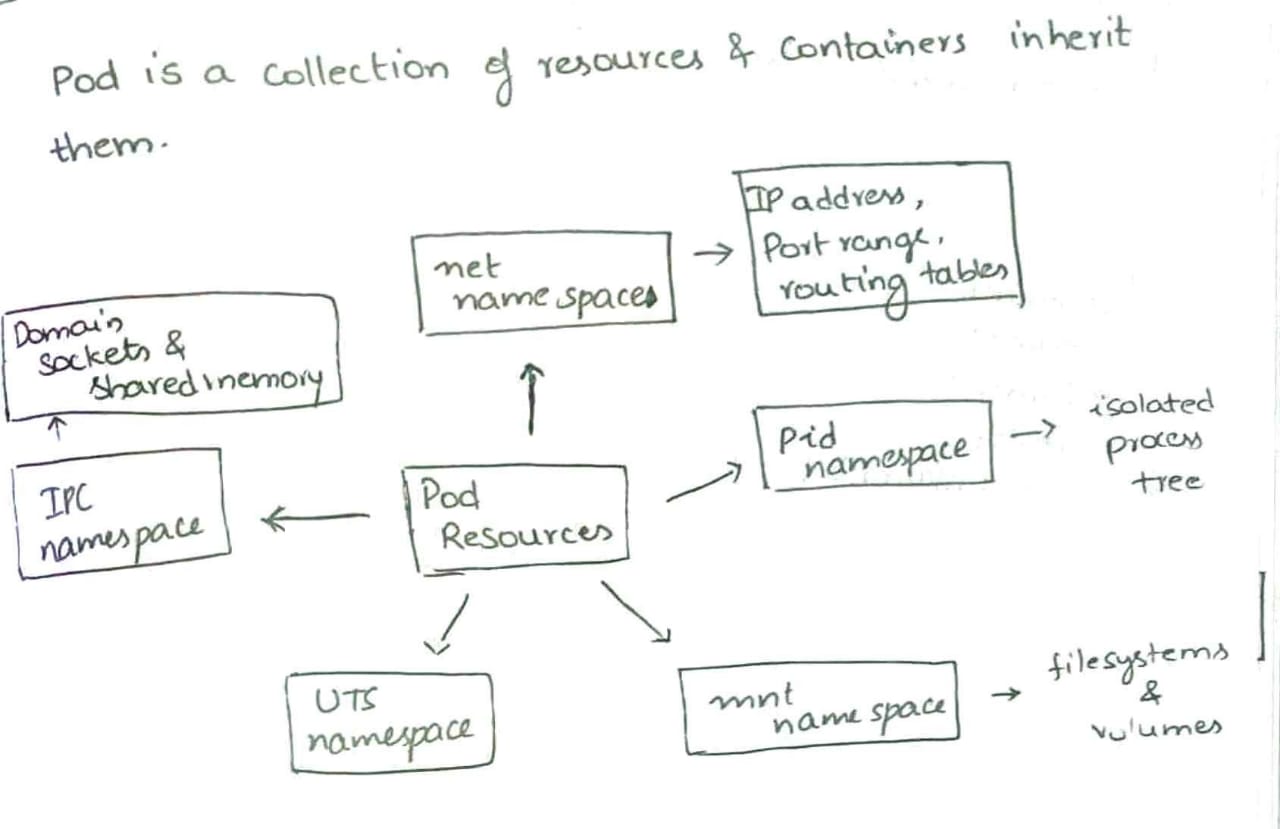 Pod is a collection of resources & containers inherit
them.
IP address,
Port range,
routing tables
net
namespaces
Domain
sockets &
shared memory
Pid
namespace
isolated
process
tree
IPC
namespace
Pod
Resources
UTS
namespace
mnt
namespace
filesystems
&
volumes